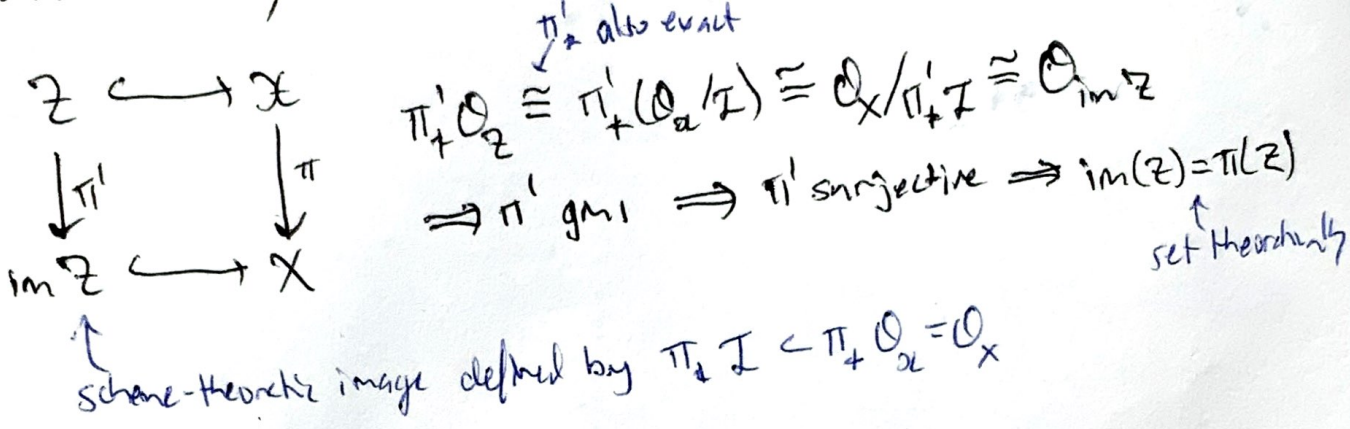 π'_* also exact
Z ↪ 𝒳
π'_* O_Z ≅ π'_*(O_𝒳/I) ≅ O_X/π'_* I ≅ O_{im Z}
↓π' ↓π
⇒ π' gms ⇒ π' surjective ⇒ im(Z)=π(Z)
im Z ↪ X
set theoretically
scheme-theoretic image defined by π_* I ⊂ π_* O_𝒳 = O_X